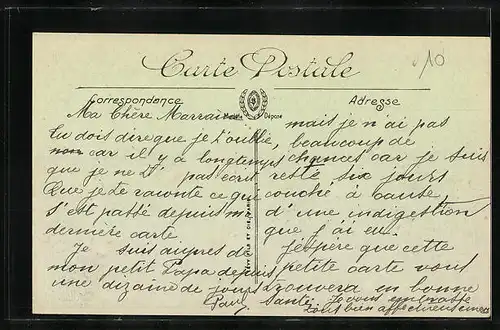 10
Carte Postale
Correspondance
Adresse
Déposé
Ma Chère Marraine
tu dois dire que je t'oublie,
non car il y a longtemps
que je ne t' pas ecrit
Que je te raconte ce qui
s'est passé depuis m
dernière carte
Je suis auprès de
mon petit Papa depuis
une dizaine de jours
mais je n'ai pas
beaucoup de
chances car je suis
resté six jours
couché à cause
d'une indigestion
que j'ai eu.
J'espère que cette
petite carte vous
trouvera en bonne
santé. Je vous embrasse
tous bien affectueusement